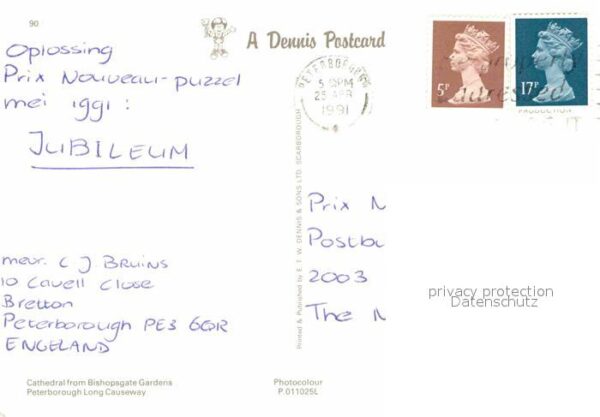 90
A Dennis Postcard
Oplossing
Prix Nouveau-puzzel
mei 1991:
JUBILEUM
PETERBOROUGH
5 PM
25 APR
1991
5P
17P
Prix N
Postbu
2003
The N
mevr. C J Bruins
10 Cavell Close
Bretton
Peterborough PE3 6QR
ENGELAND
Printed & Published by E. T. W. DENNIS & SONS LTD. SCARBOROUGH
privacy protection
Datenschutz
Cathedral from Bishopsgate Gardens
Peterborough Long Causeway
Photocolour
P.011025L